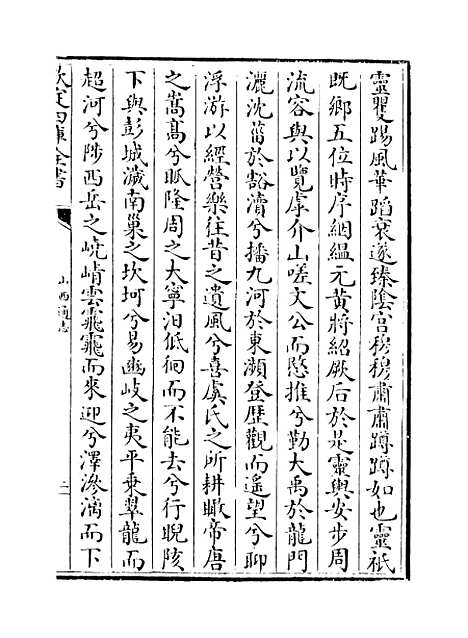 靈䠞踢風華蹈衰遂臻隂宫穆穆肅肅蹲蹲如也靈祇
既鄉五位時序絪緼元黄將紹厥后於是靈輿安步周
流容與以覽虖介山嗟文公而愍推兮勤大禹於龍門
灑沈菑於豁瀆兮播九河於東瀕登歷觀而遥望兮聊
浮㳺以經營樂往昔之遺風兮喜虞氏之所耕瞰帝唐
之嵩髙兮眽隆周之大寧汩低徊而不能去兮行睨陔
下與彭城濊南巢之坎坷兮易豳岐之夷平乗翠龍而
超河兮陟西岳之嶢崝雲霏霏而來迎兮澤滲漓而下
欽定四庫全書
山西通志
二